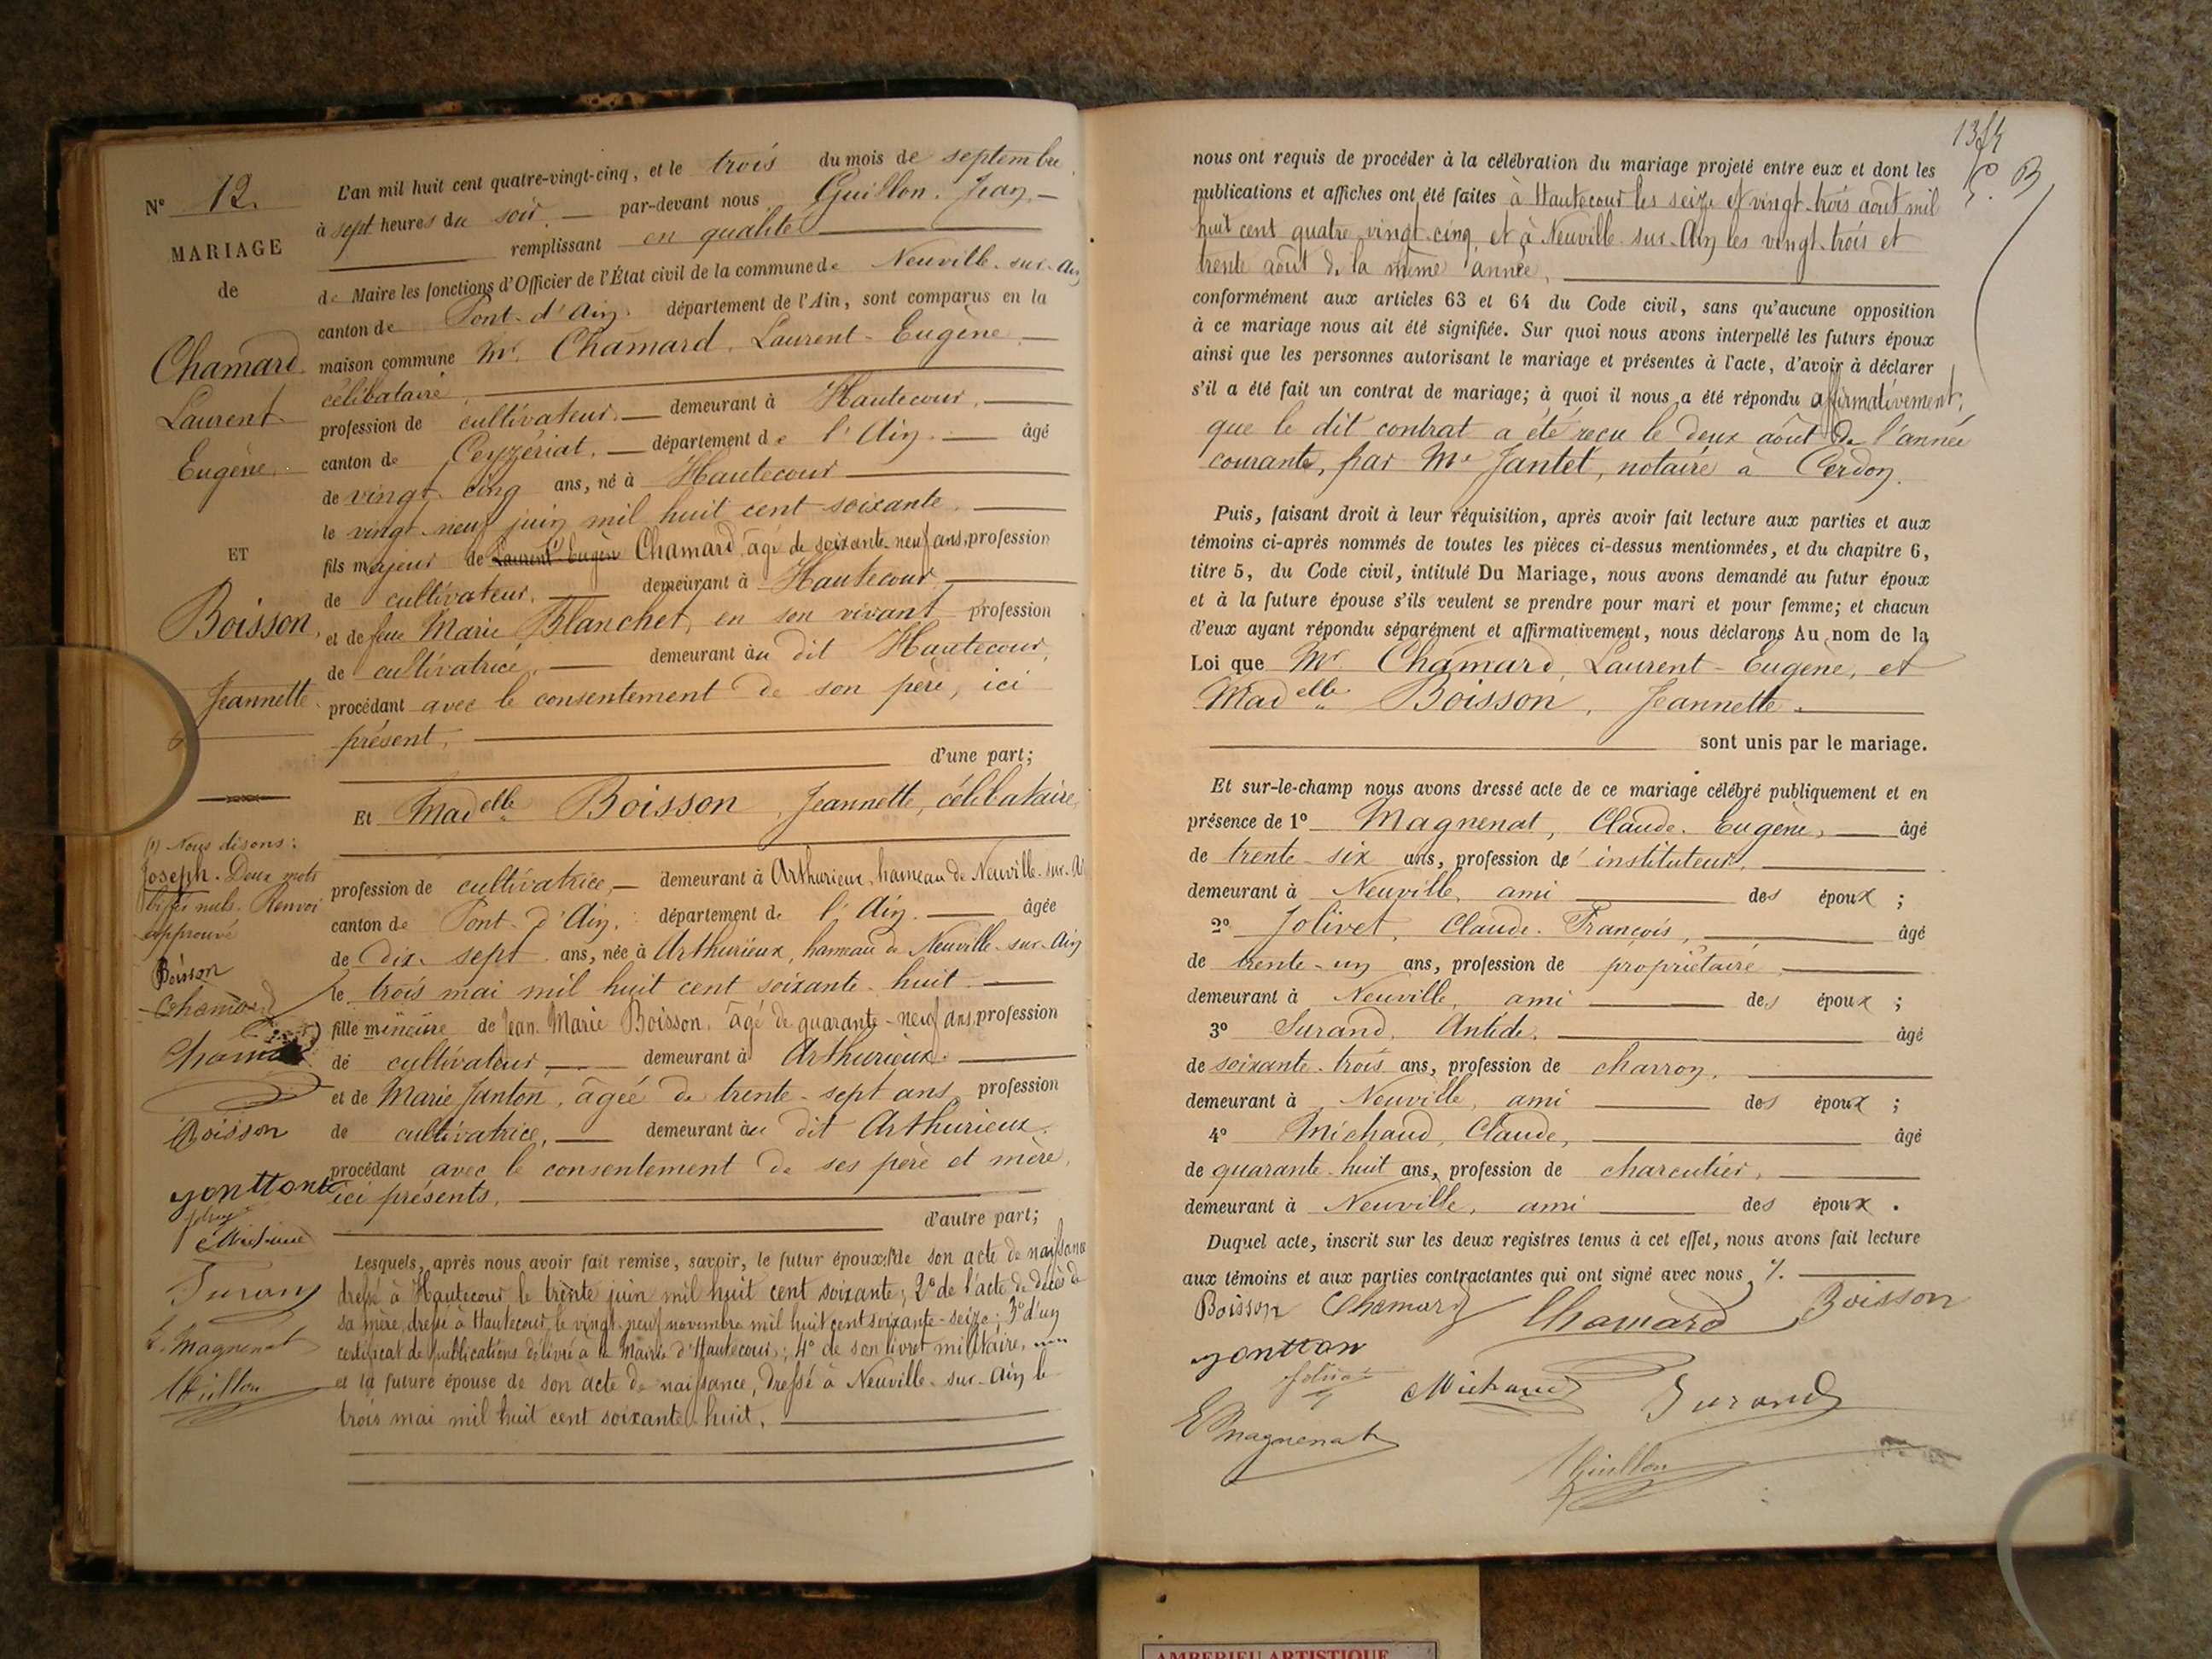 N° 12.
MARIAGE
de
Chamard
Laurent
Eugène.
ET
Boisson,
Jeannette.
(1) Nous disons:
Joseph. Deux mots
biffés nuls. Renvoi
approuvé
Boisson
Chamard
Chamard
Boisson
yonttont
Michaud
Surand
E. Magnenat
Guillon
L'an mil huit cent quatre-vingt-cinq, et le trois du mois de septembre
à sept heures du soir — par-devant nous Guillon. Jean, —
remplissant en qualité
de Maire les fonctions d'Officier de l'État civil de la commune de Neuville-sur-Ain
canton de Pont-d'Ain. département de l'Ain, sont comparus en la
maison commune Mr. Chamard, Laurent-Eugène, —
célibataire,
profession de cultivateur, — demeurant à Hautecour, —
canton de Ceyzériat, — département de l'Ain. — âgé
de vingt-cinq ans, né à Hautecour
le vingt-neuf juin mil huit cent soixante,
fils majeur de Laurent-Eugène (1) Chamard, âgé de soixante-neuf ans, profession
de cultivateur, — demeurant à Hautecour
et de feue Marie Blanchet, en son vivant profession
de cultivatrice, — demeurant au dit Hautecour,
procédant avec le consentement de son père, ici
présent,
d'une part;
Et Madelle Boisson, Jeannette, célibataire,
profession de cultivatrice, — demeurant à Arthurieux, hameau de Neuville-sur-A
canton de Pont-d'Ain, département de l'Ain. — âgée
de dix-sept ans, née à Arthurieux, hameau de Neuville-sur-Ain
le trois mai mil huit cent soixante-huit. —
fille mineure de Jean-Marie Boisson, âgé de quarante-neuf ans, profession
de cultivateur — demeurant à Arthurieux. —
et de Marie Janton, âgée de trente-sept ans, profession
de cultivatrice, — demeurant au dit Arthurieux.
procédant avec le consentement de ses père et mère,
ici présents,
d'autre part;
Lesquels, après nous avoir fait remise, savoir, le futur époux: 1° de son acte de naissance
dressé à Hautecour le trente juin mil huit cent soixante; 2° de l'acte de décès de
sa mère, dressé à Hautecour, le vingt-neuf novembre mil huit cent soixante-seize; 3° d'un
certificat de publications délivré à la Mairie d'Hautecour; 4° de son livret militaire,
et la future épouse de son acte de naissance, dressé à Neuville-sur-Ain le
trois mai mil huit cent soixante-huit,
nous ont requis de procéder à la célébration du mariage projeté entre eux et dont les
publications et affiches ont été faites à Hautecour les seize et vingt-trois août mil
huit cent quatre-vingt-cinq, et à Neuville-sur-Ain les vingt-trois et
trente août de la même année,
conformément aux articles 63 et 64 du Code civil, sans qu'aucune opposition
à ce mariage nous ait été signifiée. Sur quoi nous avons interpellé les futurs époux
ainsi que les personnes autorisant le mariage et présentes à l'acte, d'avoir à déclarer
s'il a été fait un contrat de mariage; à quoi il nous a été répondu affirmativement,
que le dit contrat a été reçu le deux août de l'année
courante, par Me Jantet, notaire à Cerdon.
Puis, faisant droit à leur réquisition, après avoir fait lecture aux parties et aux
témoins ci-après nommés de toutes les pièces ci-dessus mentionnées, et du chapitre 6,
titre 5, du Code civil, intitulé Du Mariage, nous avons demandé au futur époux
et à la future épouse s'ils veulent se prendre pour mari et pour femme; et chacun
d'eux ayant répondu séparément et affirmativement, nous déclarons Au nom de la
Loi que Mr. Chamard, Laurent-Eugène, et
Madelle Boisson, Jeannette.
sont unis par le mariage.
Et sur-le-champ nous avons dressé acte de ce mariage célébré publiquement et en
présence de 1° Magnenat, Claude-Eugène, — âgé
de trente-six ans, profession de instituteur,
demeurant à Neuville, ami — des époux ;
2° Jolivet, Claude-François, — âgé
de trente-un ans, profession de propriétaire,
demeurant à Neuville, ami — des époux ;
3° Surand, Antide, — âgé
de soixante-trois ans, profession de charron,
demeurant à Neuville, ami — des époux ;
4° Michaud, Claude, — âgé
de quarante-huit ans, profession de charcutier,
demeurant à Neuville, ami — des époux .
Duquel acte, inscrit sur les deux registres tenus à cet effet, nous avons fait lecture
aux témoins et aux parties contractantes qui ont signé avec nous
Boisson Chamard Chamard Boisson
yonttan
Michaud Surand
E Magnenat
Guillon
AMBERIEU ARTISTIQUE